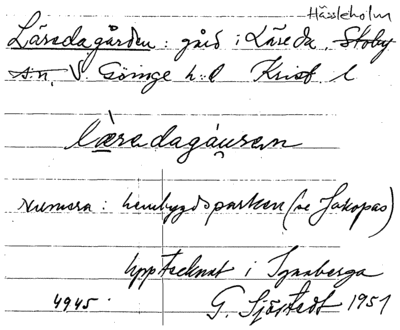 Hässleholm
Läredagården: gård i Läreda, Stoby
sn, V. Göinge hd Krist l
lä̀redagáu̯ren
numera: hembygdsparken (se Jakopas)
Upptecknat i Ignaberga
4945. G. Sjöstedt 1951